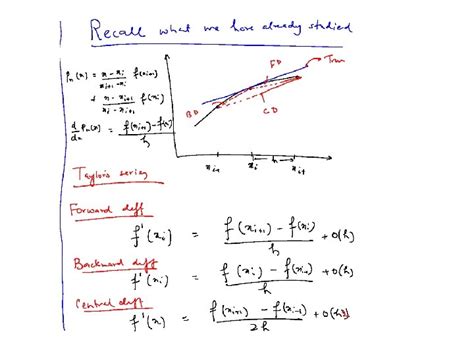 Recall what we have already studied
Pn(x) = x - xi / xi+1 - xi f(xi+1)
+ x - xi+1 / xi - xi+1 f(xi)
d/dx Pn(x) = f(xi+1) - f(xi) / h
FD
True
BD
CD
xi-1 xi h xi+1
Taylor's series
Forward diff
f'(xi) = f(xi+1) - f(xi) / h + O(h)
Backward diff
f'(xi) = f(xi) - f(xi-1) / h + O(h)
Central diff
f'(x) = f(xi+1) - f(xi-1) / 2h